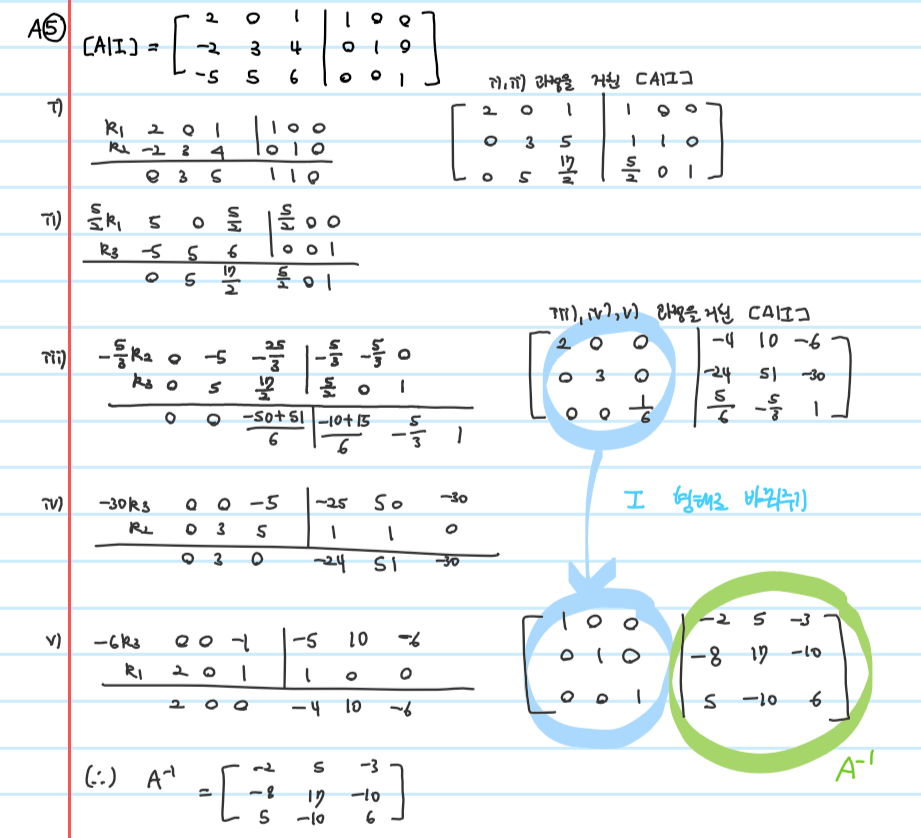 A⑤
[A|I] = [ 2 0 1 | 1 0 0
-2 3 4 | 0 1 0
-5 5 6 | 0 0 1 ]
i)
R1 2 0 1 | 1 0 0
R2 -2 3 4 | 0 1 0
0 3 5 1 1 0
i), ii) 과정을 거친 [A|I]
[ 2 0 1 | 1 0 0
0 3 5 | 1 1 0
0 5 17/2 | 5/2 0 1 ]
ii) 5/2 R1 5 0 5/2 | 5/2 0 0
R3 -5 5 6 | 0 0 1
0 5 17/2 5/2 0 1
iii) -5/3 R2 0 -5 -25/3 | -5/3 -5/3 0
R3 0 5 17/2 | 5/2 0 1
0 0 (-50+51)/6 | (-10+15)/6 -5/3 1
iii), iv), v) 과정을 거친 [A|I]
[ 2 0 0 | -4 10 -6
0 3 0 | -24 51 -30
0 0 1/6 | 5/6 -5/3 1 ]
iv) -30R3 0 0 -5 | -25 50 -30
R2 0 3 5 | 1 1 0
0 3 0 -24 51 -30
I 형태로 바꿔주기
v) -6R3 0 0 -1 | -5 10 -6
R1 2 0 1 | 1 0 0
2 0 0 -4 10 -6
[ 1 0 0 | -2 5 -3
0 1 0 | -8 17 -10
0 0 1 | 5 -10 6 ]
A⁻¹
(∴) A⁻¹ = [ -2 5 -3
-8 17 -10
5 -10 6 ]